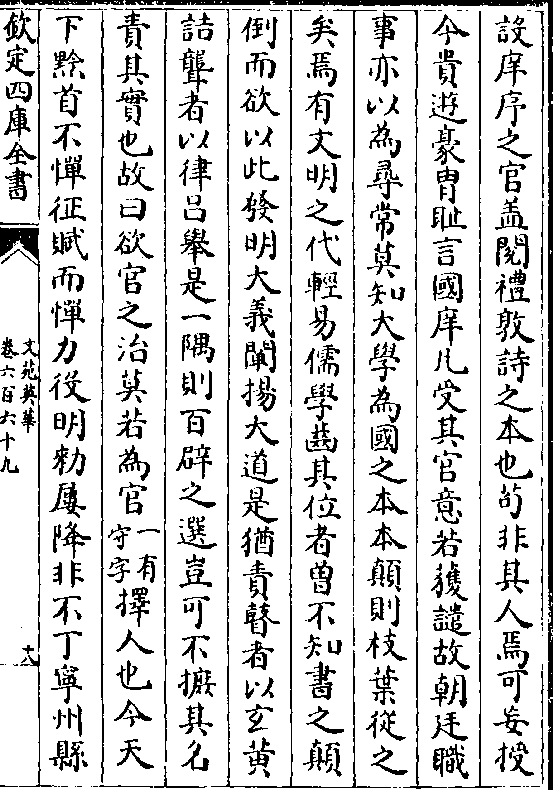 設庠序之官盖閱禮敦詩之本也茍非其人焉可妄授
今貴遊豪胄耻言國庠凡受其官意若獲譴故朝廷職
事亦以為尋常莫知大學為國之本本顛則枝葉從之
矣焉有文明之代輕易儒學齒其位者曾不知書之顛
倒而欲以此發明大義闡揚大道是猶責瞽者以玄黄
詰聾者以律吕舉是一隅則百辟之選豈可不摭其名
責其實也故曰欲官之治莫若為官一有守字擇人也今天
下黔首不憚征賦而憚力役明勑屢降非不丁寧州縣
欽定四庫全書
文苑英華
卷六百六十九
十八